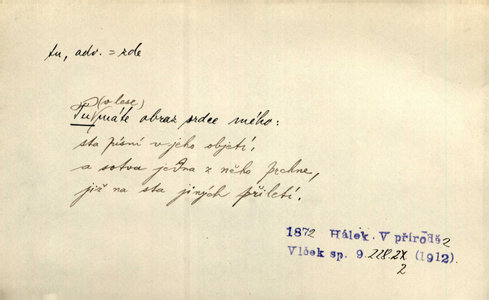 tu, adv. = zde
(v lese)
Tu máte obraz srdce mého:
sta písní v jeho objetí,
a sotva jedna z něho prchne,
již na sta jiných přiletí.
1872 Hálek. V přírodě 2
Vlček sp. 9. 228.IX (1912).
2